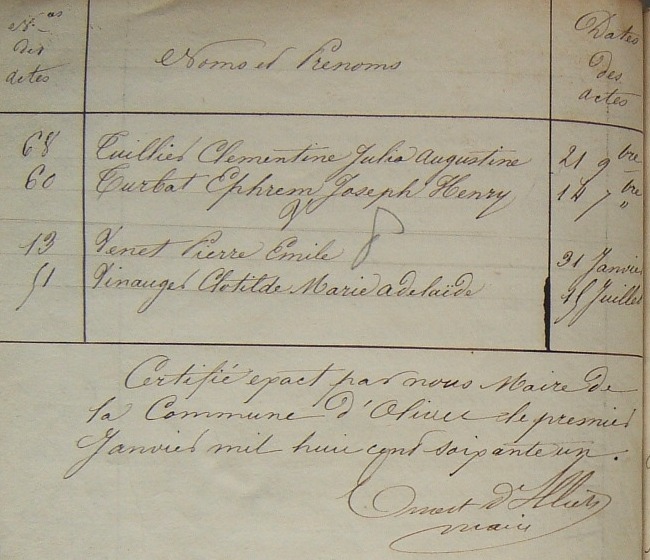 Nos des actes
Noms et Prenoms
Dates des actes
68 Tuillier Clementine Julia Augustine 21 9bre
60 Turbat Ephrem Joseph Henry 14 7bre
V
8
13 Venet Pierre Emile 31 Janvier
51 Vinauger Clotilde Marie Adelaïde 15 Juillet
Certifié exact par nous Maire de
la Commune d'Olivet le premier
Janvier mil huit cent soixante un.
maire